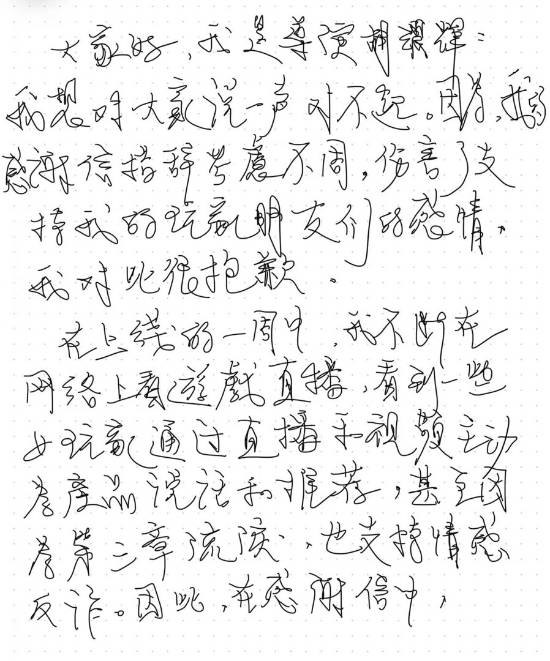 大家好，我是导演胡耀辉：
我想对大家说一声对不起。因为，我的
感谢信措辞考慮不周，伤害了支
持我的玩家朋友们的感情，
我对此很抱歉。
在上线的一周中，我不断在
网络上看遊戲直播，看到一些
女玩家通过直播和视频主动
為產品说话和推荐，甚至因
為第三章流淚，也支持情感
反诈。因此，在感谢信中，